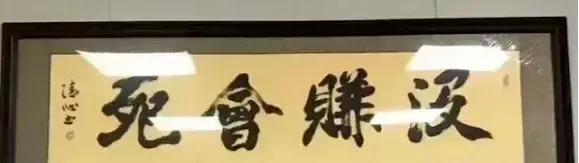 没賺會死
清心书